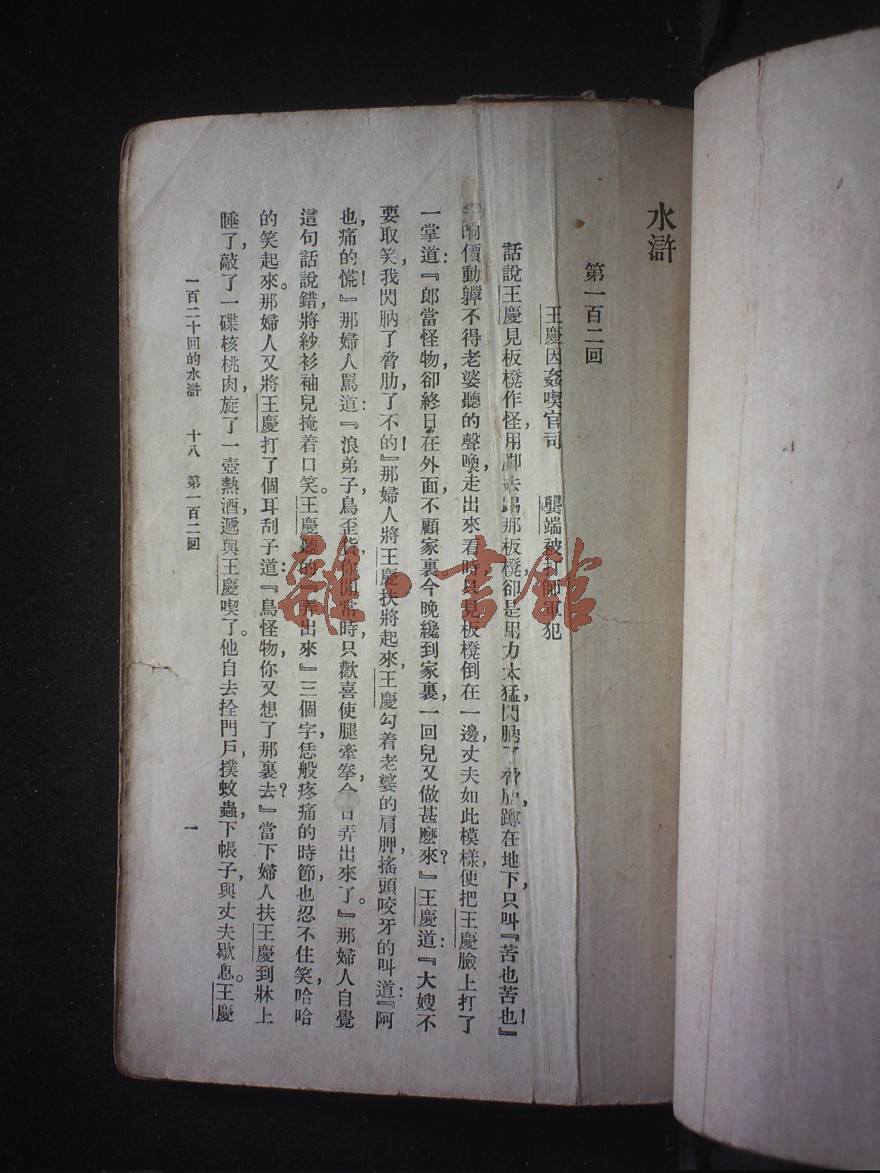 水滸
第一百二回
王慶因姦喫官司　龔端被打師軍犯
話說王慶見板櫈作怪，用脚去踢那板櫈，卻是用力太猛，閃肭了脅肋，蹲在地下，只叫『苦也苦也！』
半晌價動撣不得。老婆聽的聲喚，走出來看時，只見板櫈倒在一邊，丈夫如此模樣，便把王慶臉上打了
一掌道：『郎當怪物，卻終日在外面，不顧家裏。今晚纔到家裏，一回兒又做甚麼來？』王慶道：『大嫂不
要取笑，我閃肭了脅肋，了不的！』那婦人將王慶扶將起來，王慶勾着老婆的肩胛，搖頭咬牙的叫道：『阿
也，痛的慌！』那婦人罵道：『浪弟子，鳥歪貨，你閒常時，只歡喜使腿牽拳，今日弄出來了。』那婦人自覺
這句話說錯，將紗衫袖兒掩着口笑。王慶聽的『弄出來』三個字，恁般疼痛的時節，也忍不住笑，哈哈
的笑起來。那婦人又將王慶打了個耳刮子道：『鳥怪物，你又想了那裏去？』當下婦人扶王慶到牀上
睡了，敲了一碟核桃肉，旋了一壺熱酒，遞與王慶喫了。他自去拴門戶，撲蚊蟲，下帳子，與丈夫歇息。王慶
一百二十回的水滸　十八　第一百二回　一
雜·書館